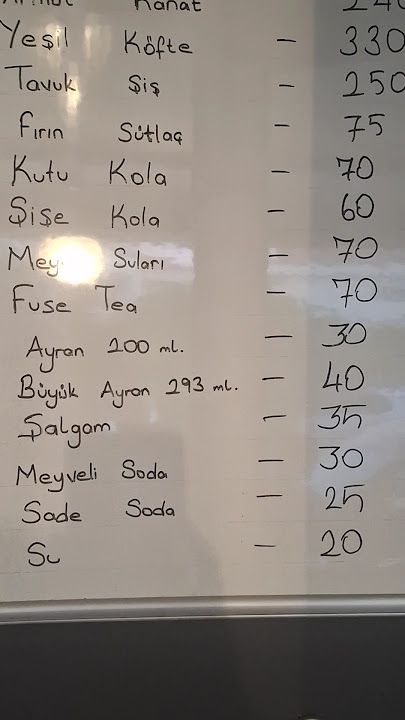 Kanat 240
Yeşil Köfte - 330
Tavuk Şiş - 250
Fırın Sütlaç - 75
Kutu Kola - 70
Şişe Kola - 60
Mey Suları - 70
Fuse Tea - 70
Ayran 200 ml. - 30
Büyük Ayran 293 ml. - 40
Şalgam - 35
Meyveli Soda - 30
Sade Soda - 25
Su - 20